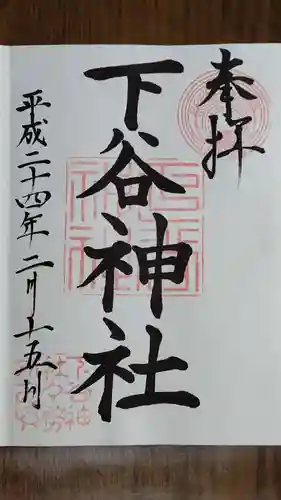 奉拝
下谷神社
平成二十四年二月十五日